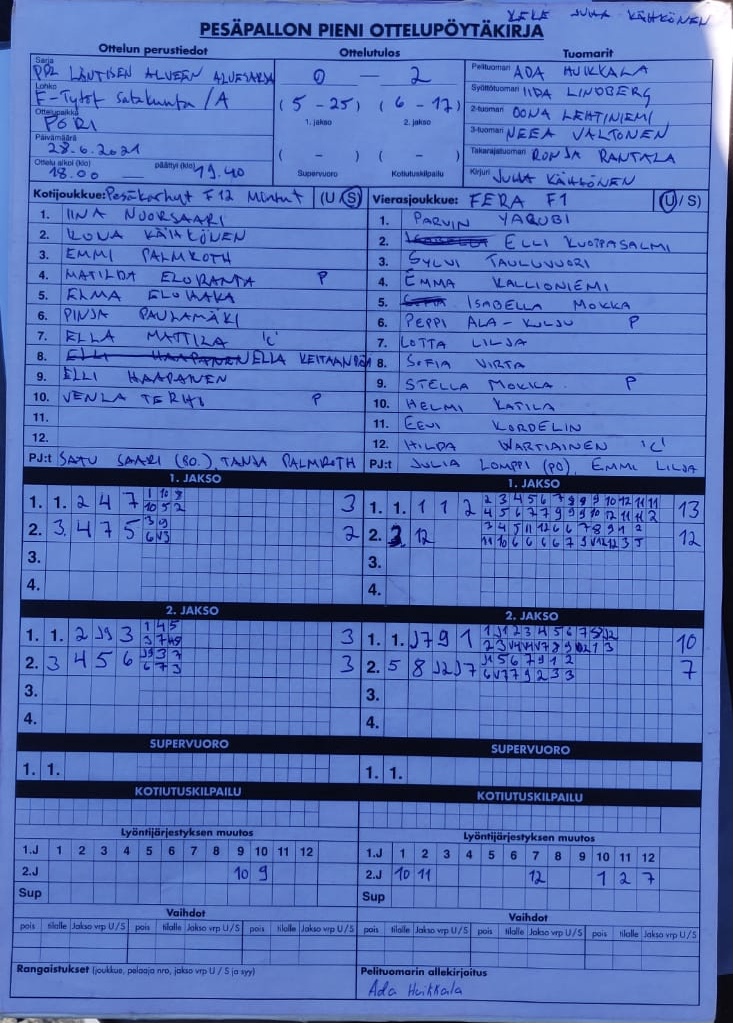 KELE JUHA KÄHKÖNEN
PESÄPALLON PIENI OTTELUPÖYTÄKIRJA
Ottelun perustiedot
Sarja
LÄNTISEN ALUEEN
Lohko
F-Tytöt Satakunta /A
Ottelupaikka
PORI
Päivämäärä
28.6.2021
Ottelu alkoi (klo) päättyi (klo)
18.00 — 19.40
Ottelutulos
0 — 2
(5 - 25) (6 - 17)
1. jakso 2. jakso
( - ) ( - )
Supervuoro Kotiutuskilpailu
Tuomarit
Pelituomari ADA HUIKKALA
Syöttötuomari IIDA LINDBERG
2-tuomari OONA LEHTINIEMI
3-tuomari NEEA VALTONEN
Takarajatuomari RONJA RANTALA
Kirjuri JUHA KÄHKÖNEN
Kotijoukkue: Pesäkarhut F12 Mintut (U/S)
1. IINA NUORSAARI
2. KÄHKÖNEN
3. EMMI PALMROTH
4. MATILDA ELORANTA P
5. ELMA
6. PINJA PAULAMÄKI
7. ELLA MATTILA 'C'
8. ELLI HAAPANEN ELLA
9. ELLI HAAPANEN
10. VENLA TERHI P
11.
12.
PJ:t SATU SAARI (80.), TANJA PALMROTH
Vierasjoukkue: FERA F1 (U/S)
1. PARVIN YAQUBI
2. ELLI KUOPPASALMI
3. SYLVI TAULUVUORI
4. EMMA KALLIONIEMI
5. ISABELLA MOKKA
6. PEPPI ALA-KULJU P
7. LOTTA LILJA
8. SOFIA VIRTA
9. STELLA MOKKA P
10. HELMI KATILA
11. EEVI KORDELIN
12. HILDA WARTIAINEN 'C'
PJ:t JULIA LOMPPI (PO), EMMI LILJA
1. JAKSO
1. 1. 2 4 7 3
2. 3. 4 7 5 2
3.
4.
1. JAKSO
1. 1. 1 1 2 13
2. 12 12
3.
4.
2. JAKSO
1. 1. 2 J9 3 3
2. 3 4 5 6 3
3.
4.
2. JAKSO
1. 1. J7 9 1 10
2. 5 8 J2 J7 7
3.
4.
SUPERVUORO
1. 1.
SUPERVUORO
1. 1.
KOTIUTUSKILPAILU
KOTIUTUSKILPAILU
Lyöntijärjestyksen muutos
1.J 1 2 3 4 5 6 7 8 9 10 11 12
2.J 10 9
Sup
Lyöntijärjestyksen muutos
1.J 1 2 3 4 5 6 7 8 9 10 11 12
2.J 10 11 12 1 2 7
Sup
Vaihdot
pois tilalle Jakso vrp U/S pois tilalle Jakso vrp U/S pois tilalle Jakso vrp U/S
Vaihdot
pois tilalle Jakso vrp U/S pois tilalle Jakso vrp U/S pois tilalle Jakso vrp U/S
Rangaistukset (joukkue, pelaaja nro, jakso vrp U / S ja syy)
Pelituomarin allekirjoitus
Ada Huikkala